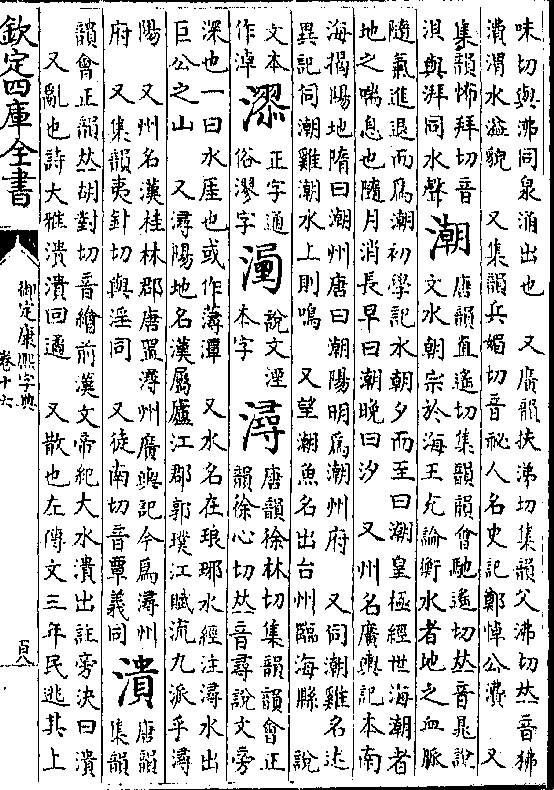 味切與沸同泉涌出也　又廣韻扶沸切集韻父沸切𠀤音狒
渭水溢貌　又集韻兵媚切音祕人名史記鄭悼公　又
集韻怖拜切音浿與湃同水聲
潮　唐韻直遙切集韻韻會馳遙切𠀤音晁說文水朝宗於海王充論衡水者地之血脈
隨氣進退而爲潮初學記水朝夕而至曰潮皇極經世海潮者
地之喘息也隨月消長早曰朝晚曰汐　又州名廣輿記本南
海揭陽地隋曰潮州唐曰潮陽明爲潮州府　又伺潮雞名述
異記伺潮雞潮水上則鳴　又望潮魚名出台州臨海縣　說
文本作淖
正字通俗漻字
說文湮本字
潯　唐韻徐林切集韻韻會正韻徐心切𠀤音尋說文旁
深也一曰水厓也或作潭　又水名在琅琊水經注潯水出
巨公之山　又潯陽地名漢屬廬江郡郭璞江賦流九派乎潯
陽　又州名漢桂林郡唐置潯州廣輿記今爲潯州
府　又集韻夷針切與淫同　又徒南切音覃義同
潰　唐韻集韻
韻會正韻𠀤胡對切音繪前漢文帝紀大水潰出註旁決曰潰
又亂也詩大雅潰潰回遹　又散也左傳文三年民逃其上
欽定四庫全書
御定康熙字典
卷十六
百八